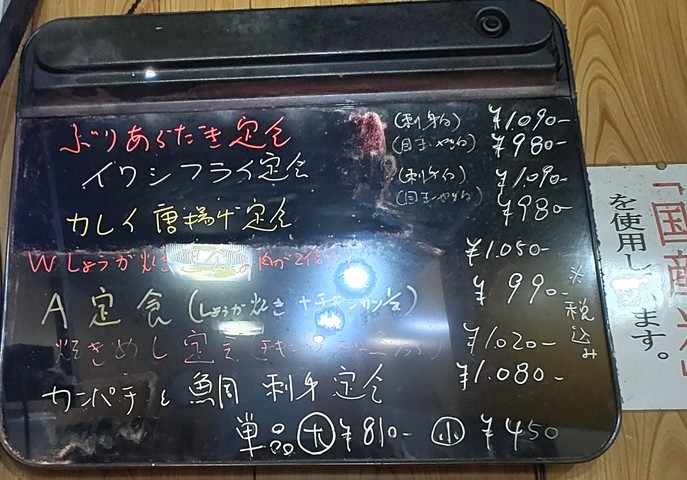 ぶりあらだき定食 (刺身付) ¥1.090-
(目玉やき付) ¥980-
イワシフライ定食 (刺身付) ¥1.090-
カレイ唐揚げ定食 (目玉やき付) ¥980-
Wしょうが焼き定食 肉が2倍 ¥1.050-
A定食(しょうが焼き+チキンカツ½) ¥990-
焼きめし定食 ¥1.020-
カンパチと鯛 刺身定食 ¥1.080-
単品 大 ¥810- 小 ¥450
※税込み
「国産米」
を使用しています。